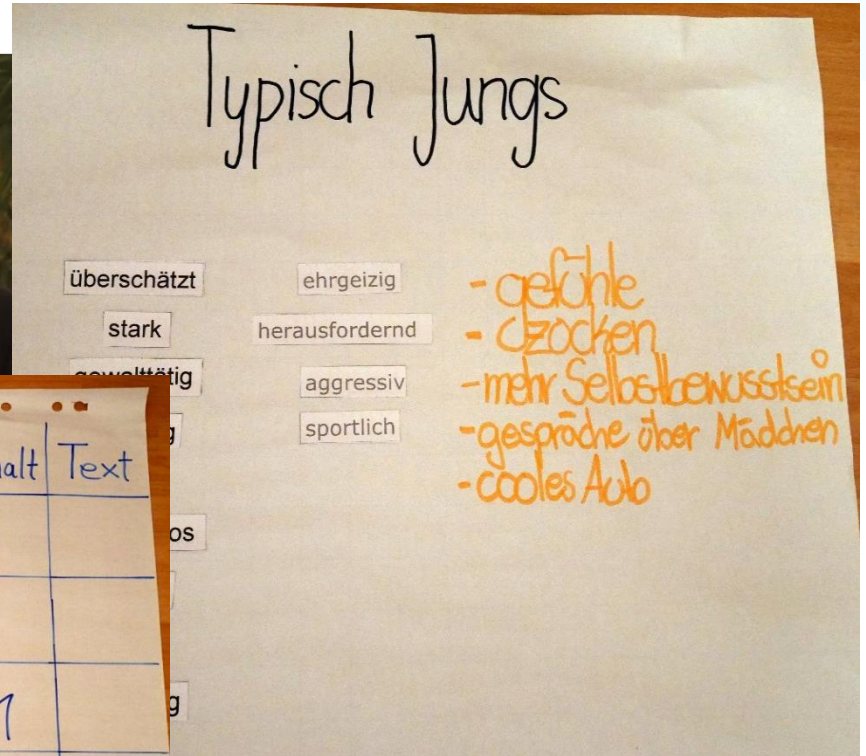 Typisch Jungs
überschätzt
stark
gewalttätig
ehrgeizig
herausfordernd
aggressiv
sportlich
- gefühle
- zocken
- mehr Selbstbewusstsein
- gespräche über Mädchen
- cooles Auto
Text